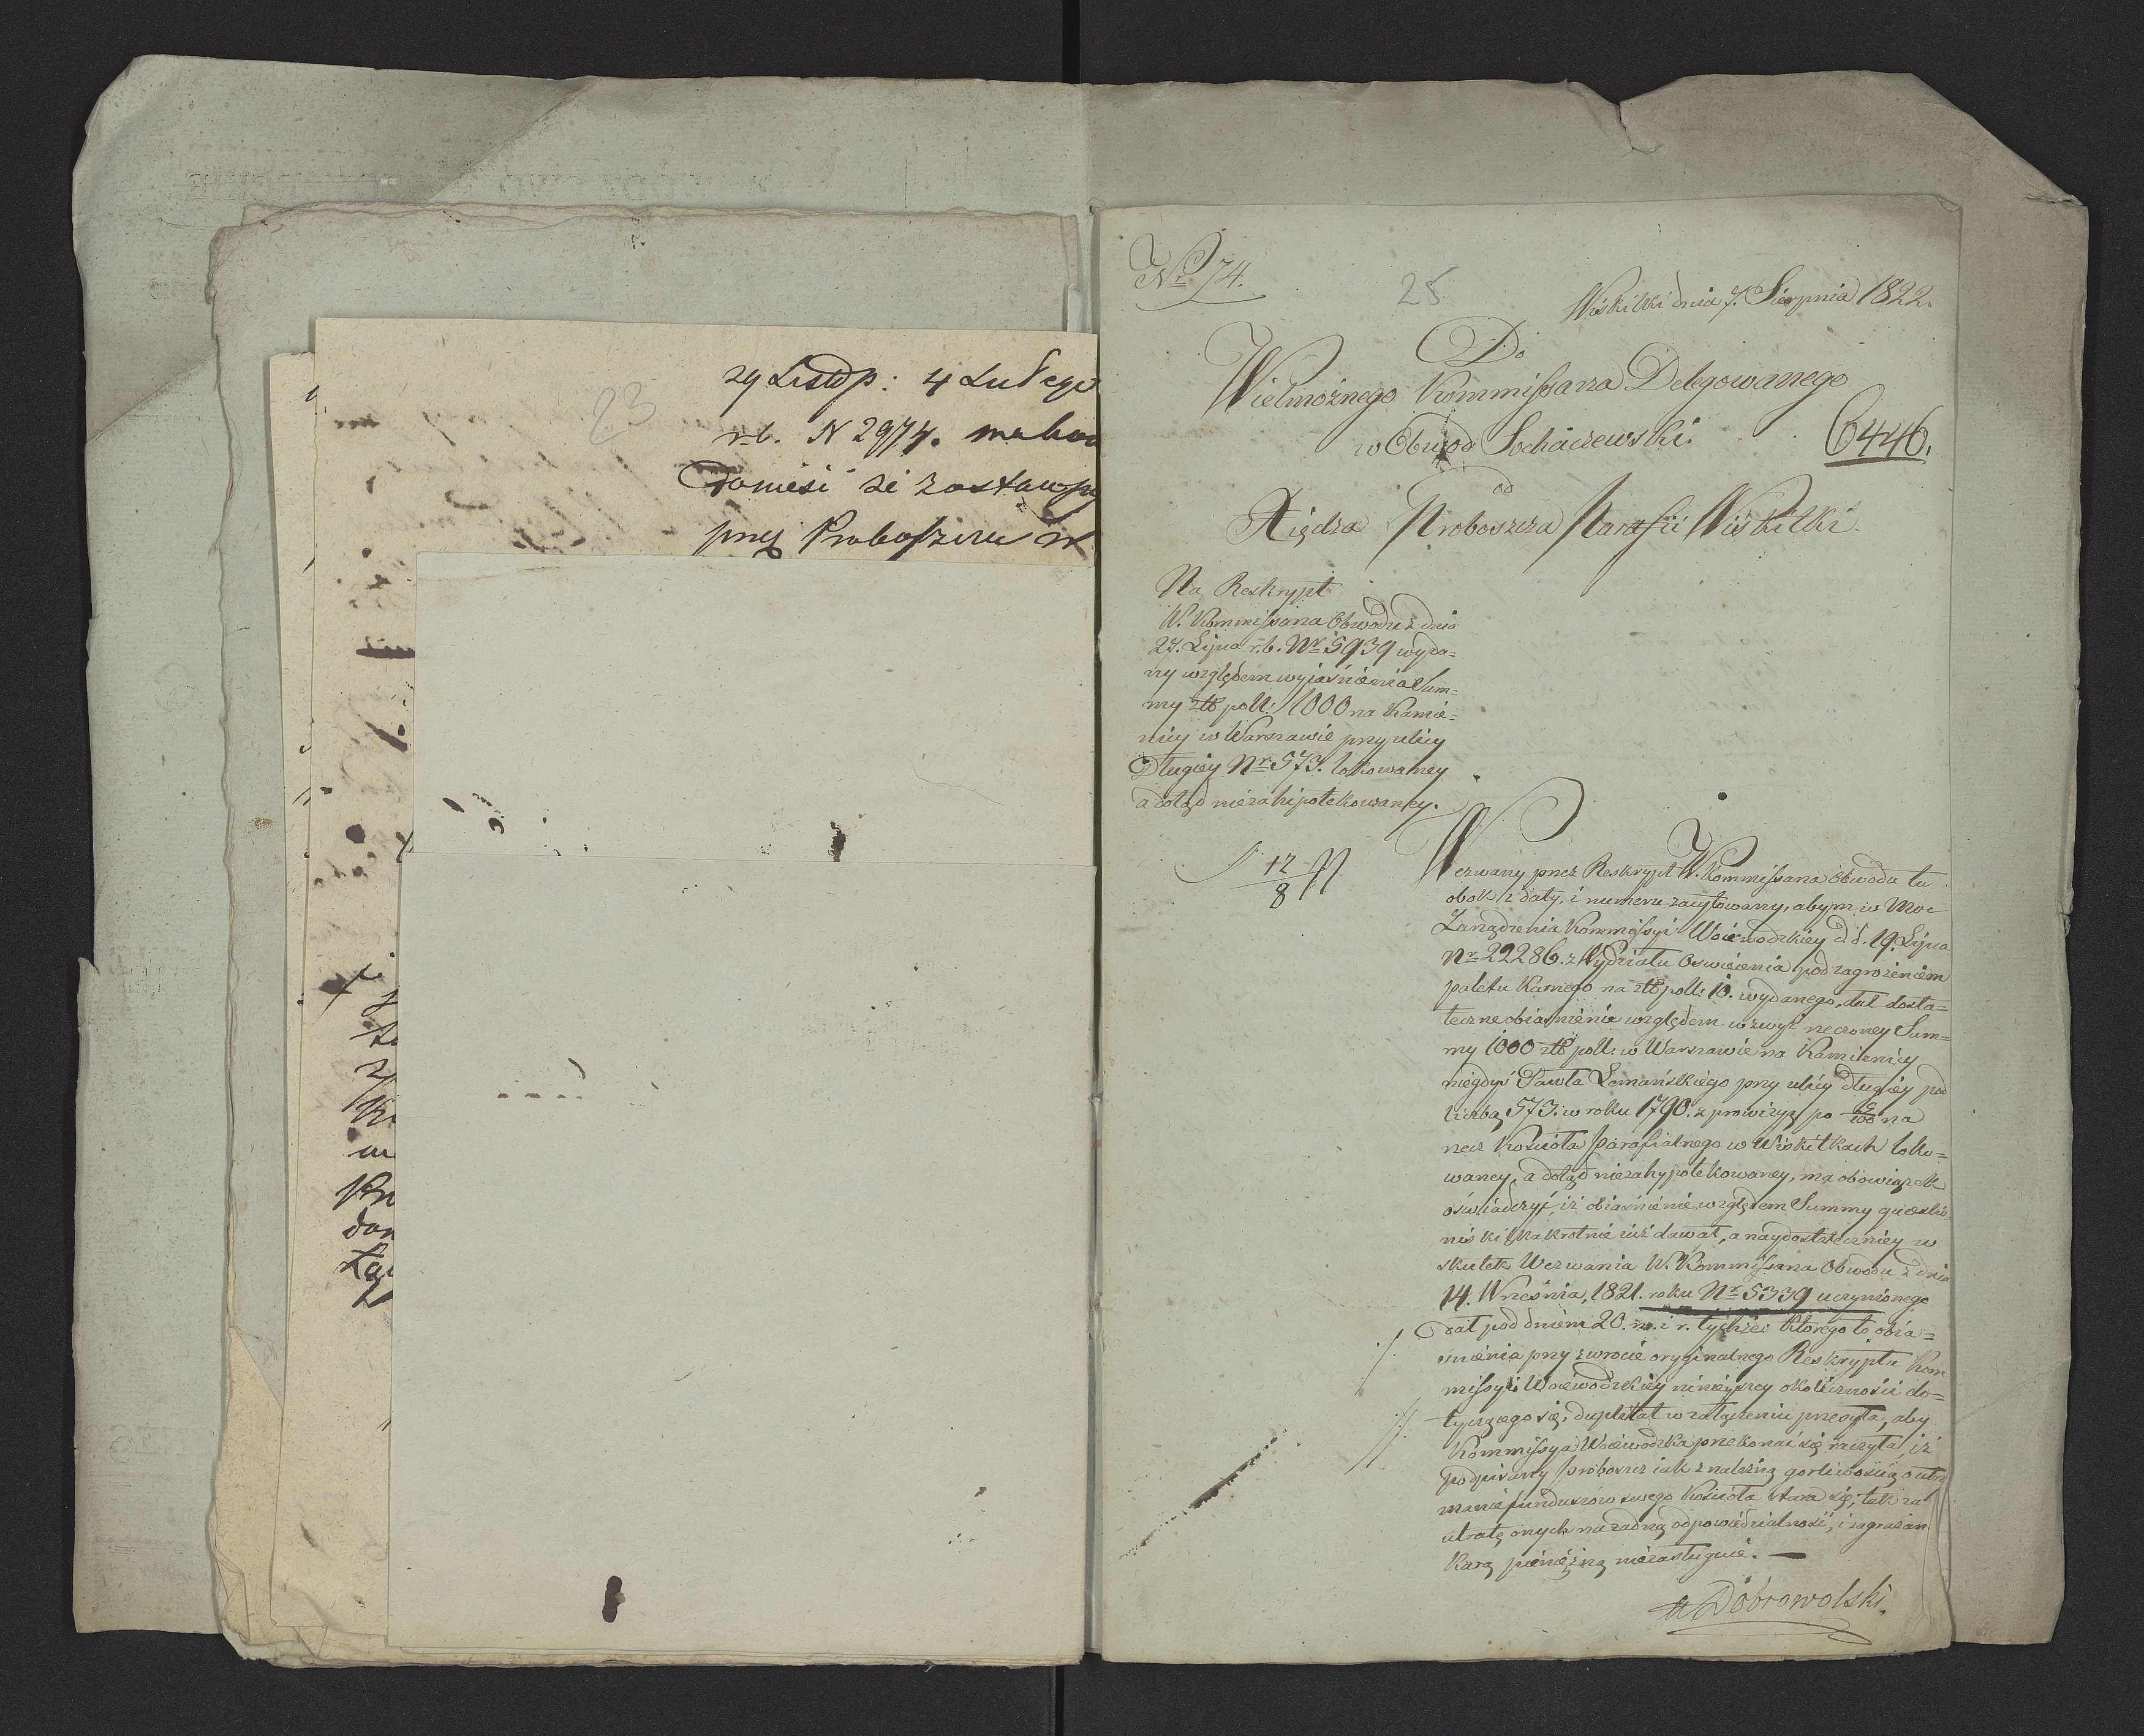 23
29 Listop: 4 Lutego
r. b. N 2974.
Donieść że
przez Proboszcza w
Nr 74.
25
Wiskitki dnia 7. Sierpnia 1822.
Do
Wielmożnego Kommissarza Delegowanego
w Obwod Sochaczewski.
6446.
od
Xiędza Proboszcza Parafii Wiskitki
Na Reskrypt
W. Kommissarza Obwodu z dnia
27. Lipca r. b. Nr 5939 wyda=
ny względem wyiaśnienia Sum=
my złł poll: 1000 na Kamie=
nicy w Warszawie przy ulicy
Długiey Nr 573. lokowaney
a dotąd niezahipotekowaney.
12
8
Wezwany przez Reskrypt W. Kommissarza Obwodu tu
obok z daty, i numeru zacytowany, abym w Moc
Zarządzenia Kommissyi Woiewodzkiey d. d. 19. Lipca
Nr 22286. z Wydziału Oswiecenia pod zagrożeniem
paletu Karnego na złł poll: 10. wydanego, dał dosta=
teczne obiasnienie względem wzwyż rzeczoney Sum=
my 1000 złł poll: w Warszawie na Kamienicy
niegdyś Pawła Lemańskiego przy ulicy Długiey pod
liczbą 573. w roku 1790. z prowizyą po 5/100 na
rzecz Kościoła parafialnego w Wiskitkach loko=
waney, a dotąd niezahypotekowaney, ma obowiązek
oświadczyć, iż obiasnienie względem Summy quaestio=
nis kilkakrotnie iuż dawał, a naydostateczniey w
skutek Wezwania W. Kommissarza Obwodu z dnia
14. Września, 1821. roku Nr 5339 uczynionego
dał pod dniem 20. m. i r. tychże: Którego to obia=
śnienia przy zwrocie oryginalnego Reskryptu Kom
missyi Woiewodzkiey ninieyszey okoliczności do=
tyczącego się, duplikat w załączeniu przesyła, aby
Kommissya Woiewodzka przekonać się raczyła iż
podpisany proboszcz iak z należną gorliwością o utrz
manie funduszów swego Kościoła stara się, tak za
utratę onych na żadną odpowiedzialność, i zagrażan
karą pieniężną niezasługuie. —
Dobrowolski.